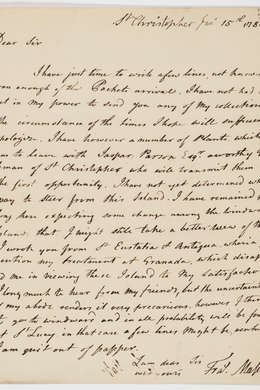 St Christopher Jan 15th 178
Dear Sir
I have just time to write a few lines, not know
soon enough of the Packets arrival. I have not had
yet in my power to send you any of my collection
the circumstance of the times I hope will sufficien
apologize. I have however a number of Plants, which
to leave with Jaspar Parson Esqr. a worthy
man of St Christopher who will transmit them
the first opportunity. I have not yet determined wh
way to steer from this Island. I have remained
long here expecting some change among the windwar
Islands. that I might still take a better view of the
I wrote you from St Eustatia & Antigua. wherein
mention my treatment at Granada, which disap
ed me in viewing these Island to my Satisfactio
I long much to hear from my friends, but the uncertain
of my abode renders it very precarious. however I th
to go to windward and in all probability will be fo
at St Lucy in that case a few lines might be
I am quit out of papper.
I am dear Sir
Fras. Mass